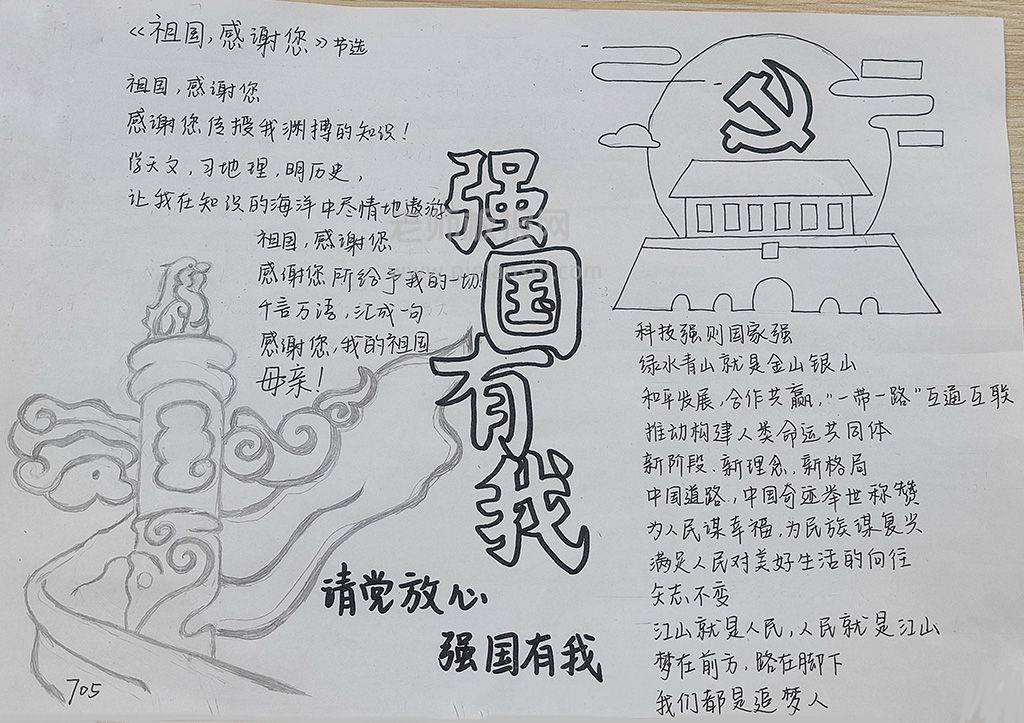 《祖国，感谢您》节选
祖国，感谢您
感谢您传授我渊博的知识！
学天文，习地理，明历史，
让我在知识的海洋中尽情地遨游
祖国，感谢您
感谢您所给予我的一切
千言万语，汇成一句
感谢您，我的祖国
母亲！
强国有我
请党放心
强国有我
科技强则国家强
绿水青山就是金山银山
和平发展，合作共赢，"一带一路"互通互联
推动构建人类命运共同体
新阶段、新理念、新格局
中国道路，中国奇迹举世称赞
为人民谋幸福，为民族谋复兴
满足人民对美好生活的向往
矢志不变
江山就是人民，人民就是江山
梦在前方，路在脚下
我们都是追梦人
705